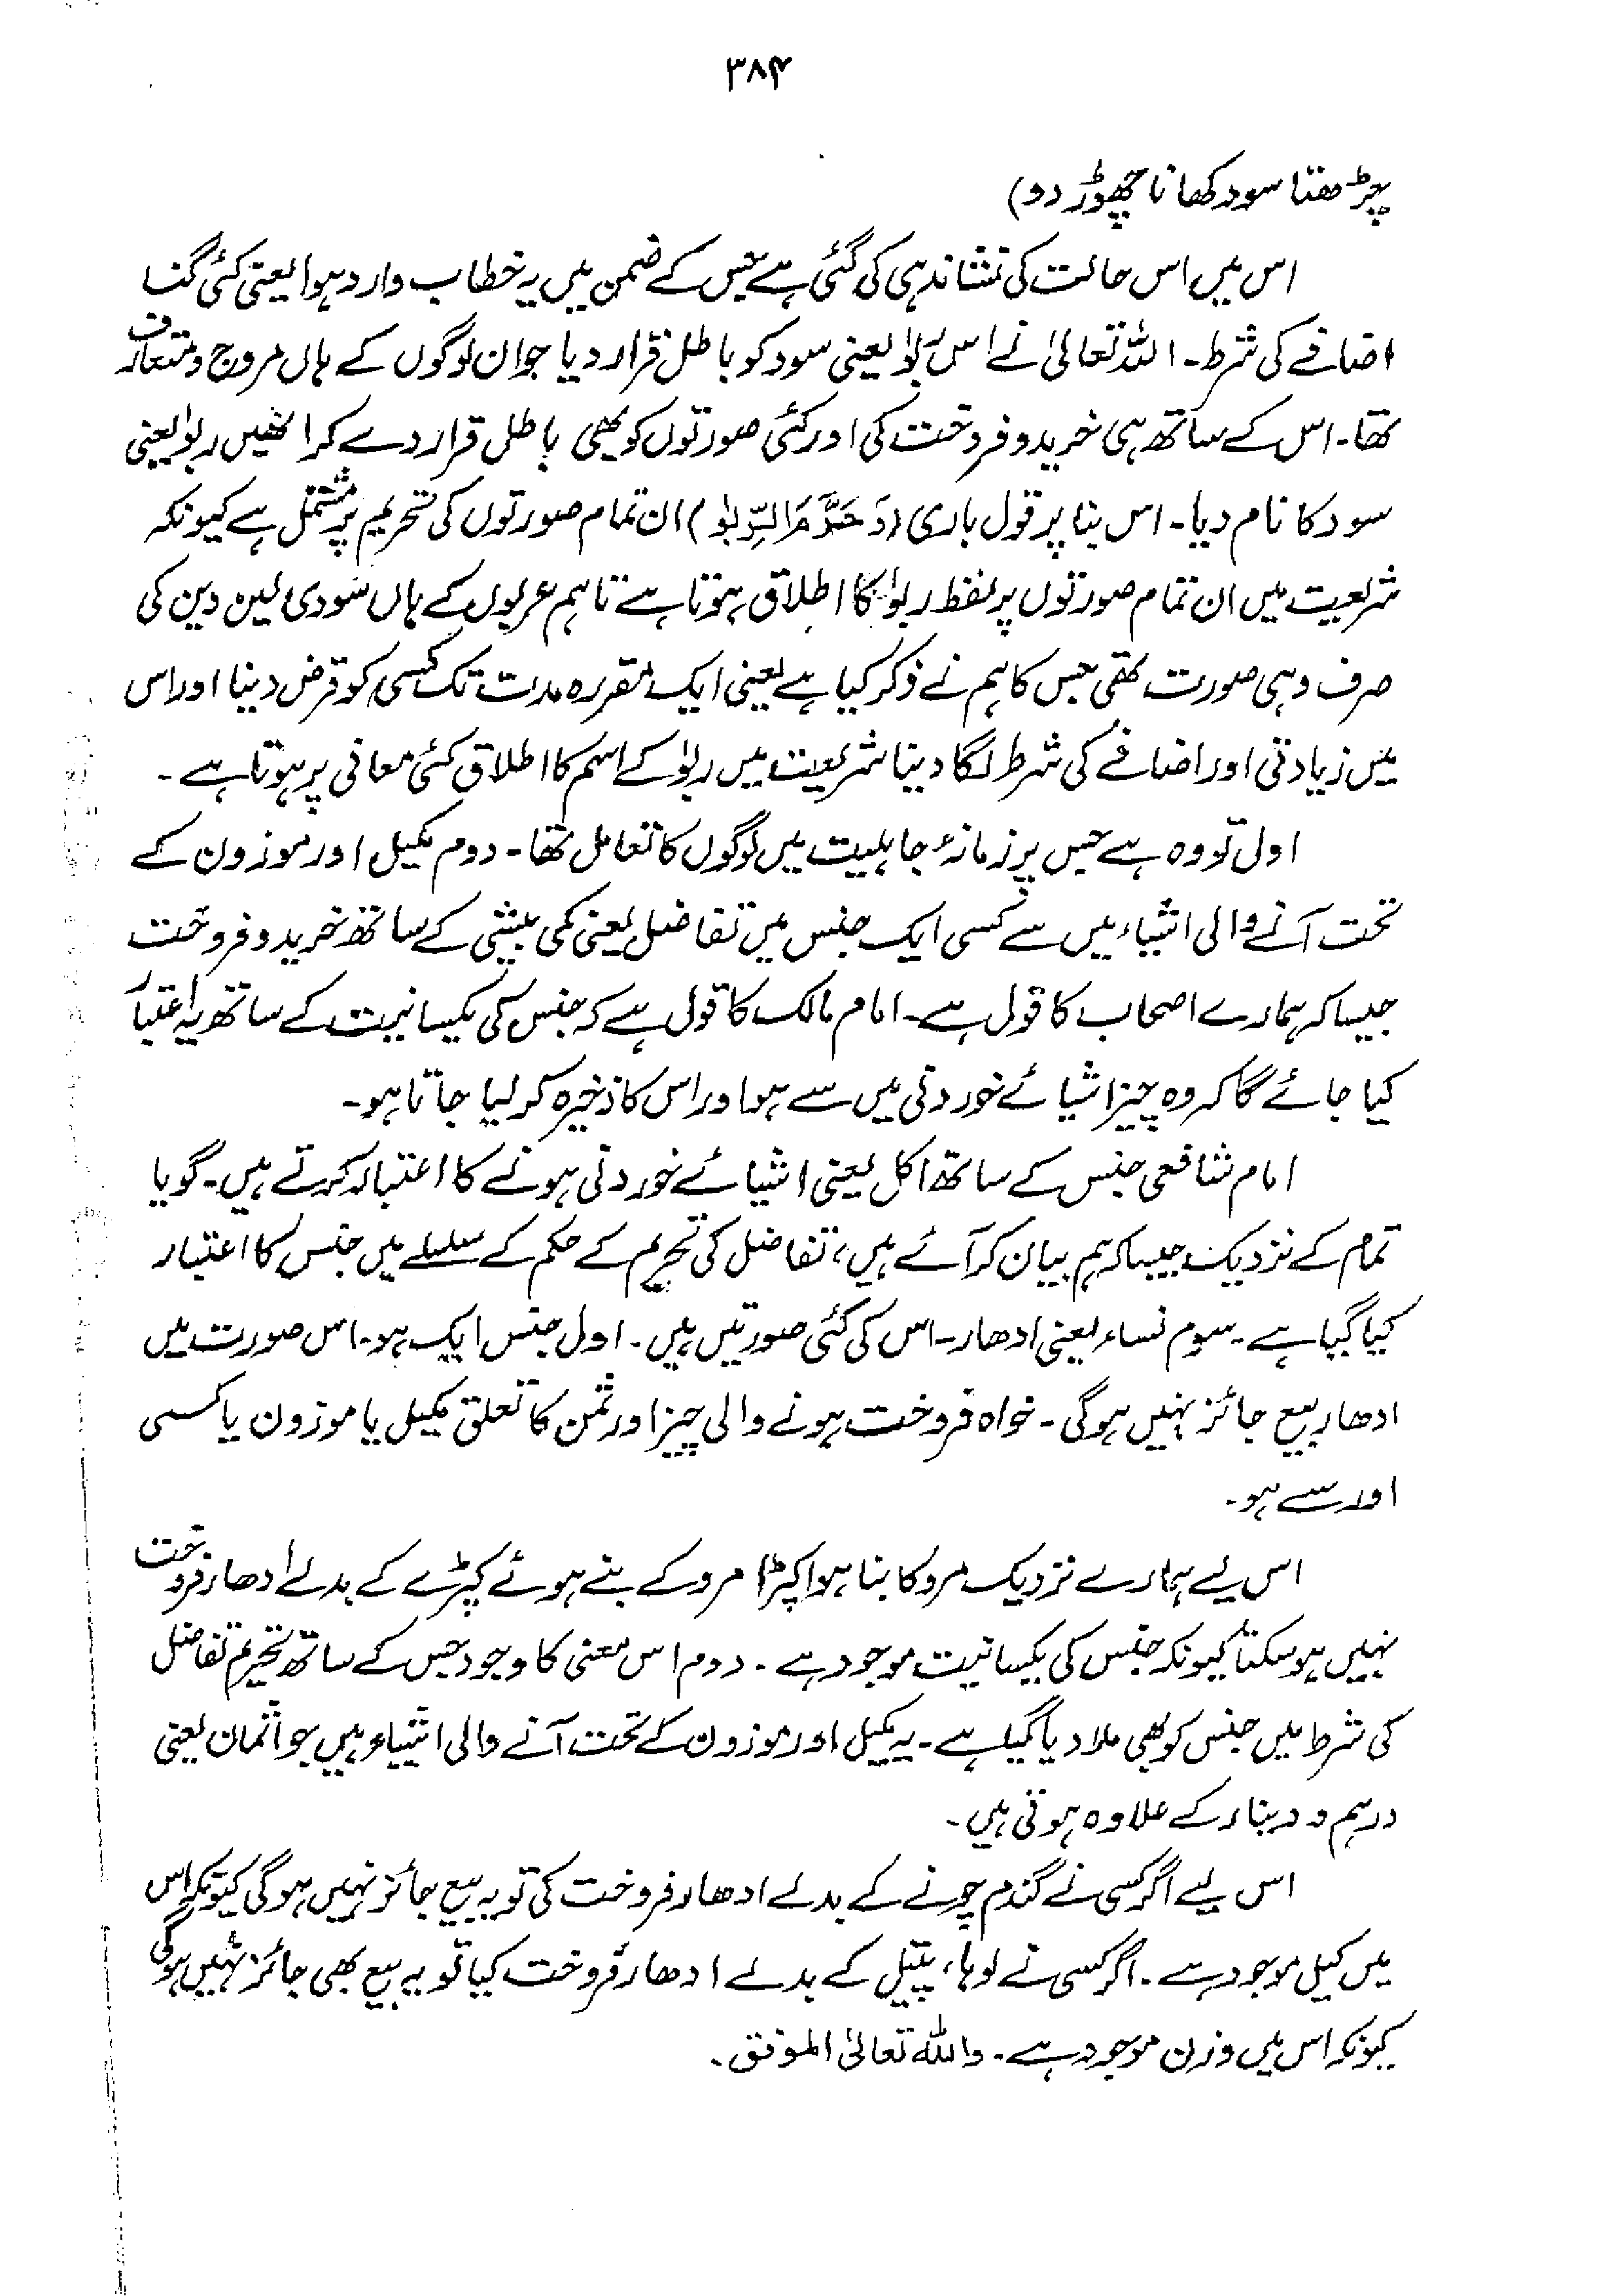 ۳۸۴
چڑھتا سود کھانا چھوڑ دو)
اس میں اس حالت کی نشاندہی کی گئی ہے جس کے ضمن میں یہ خطاب وارد ہوا یعنی کئی گنا
اضافے کی شرط۔ اللہ تعالیٰ نے اس ربوٰا یعنی سود کو باطل قرار دیا جو ان لوگوں کے ہاں مروج و متعارف
تھا۔ اس کے ساتھ ہی خرید و فروخت کی اور کئی صورتوں کو بھی باطل قرار دے کر انھیں ربوٰا یعنی
سود کا نام دیا۔ اس بنا پر قول باری (وَحَرَّمَ الرِّبٰوا) ان تمام صورتوں کی تحریم پر مشتمل ہے کیونکہ
شریعت میں ان تمام صورتوں پر لفظ ربوٰا کا اطلاق ہوتا ہے تاہم عربوں کے ہاں سودی لین دین کی
صرف وہی صورت تھی جس کا ہم نے ذکر کیا ہے یعنی ایک مقررہ مدت تک کسی کو قرض دینا اور اس
میں زیادتی اور اضافے کی شرط لگا دینا شریعت میں ربوٰا کے اسم کا اطلاق کئی معانی پر ہوتا ہے۔
اول تو وہ ہے جس پر زمانۂ جاہلیت میں لوگوں کا تعامل تھا۔ دوم مکیل اور موزون کے
تحت آنے والی اشیاء میں سے کسی ایک جنس میں تفاضل یعنی کمی بیشی کے ساتھ خرید و فروخت
جیسا کہ ہمارے اصحاب کا قول ہے۔ امام مالک کا قول ہے کہ جنس کی یکسانیت کے ساتھ یہ اعتبار
کیا جائے گا کہ وہ چیز اشیائے خوردنی میں سے ہو اور اس کا ذخیرہ کر لیا جاتا ہو۔
امام شافعی جنس کے ساتھ اکل یعنی اشیائے خوردنی ہونے کا اعتبار کرتے ہیں۔ گویا
تمام کے نزدیک جیسا کہ ہم بیان کر آئے ہیں، تفاضل کی تحریم کے حکم کے سلسلے میں جنس کا اعتبار
کیا گیا ہے۔ سوم نساء یعنی ادھار۔ اس کی کئی صورتیں ہیں۔ اول جنس ایک ہو۔ اس صورت میں
ادھار بیع جائز نہیں ہوگی۔ خواہ فروخت ہونے والی چیز اور ثمن کا تعلق مکیل یا موزون یا کسی
اور سے ہو۔
اس لیے ہمارے نزدیک مرو کا بنا ہوا کپڑا مرو کے بنے ہوئے کپڑے کے بدلے ادھار فروخت
نہیں ہو سکتا کیونکہ جنس کی یکسانیت موجود ہے۔ دوم اس معنی کا وجود جس کے ساتھ تحریم تفاضل
کی شرط میں جنس کو بھی ملا دیا گیا ہے۔ یہ مکیل اور موزون کے تحت آنے والی اشیاء ہیں جو اثمان یعنی
درہم و دینار کے علاوہ ہوتی ہیں۔
اس لیے اگر کسی نے گندم چونے کے بدلے ادھار فروخت کی تو یہ بیع جائز نہیں ہوگی کیونکہ اس
میں کیل موجود ہے۔ اگر کسی نے لوہا، پیتل کے بدلے ادھار فروخت کیا تو یہ بیع بھی جائز نہیں ہوگی
کیونکہ اس میں وزن موجود ہے۔ واللہ تعالیٰ الموفق۔